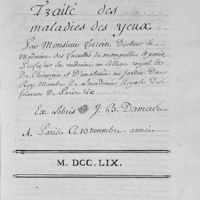 Traité des
maladies des yeux
Par Monsieur Ferrein Docteur en
Medecine des facultés de montpellier & paris
Professeur de medecine au College royal &
De Chirurgie et D'anatomie au Jardin Du
Roy, Membre De L'academie Royale Des
sciences De Paris &c
Ex Libris J. B. Damat
A Paris Ce 10 novembre année
M. DCC. LIX.